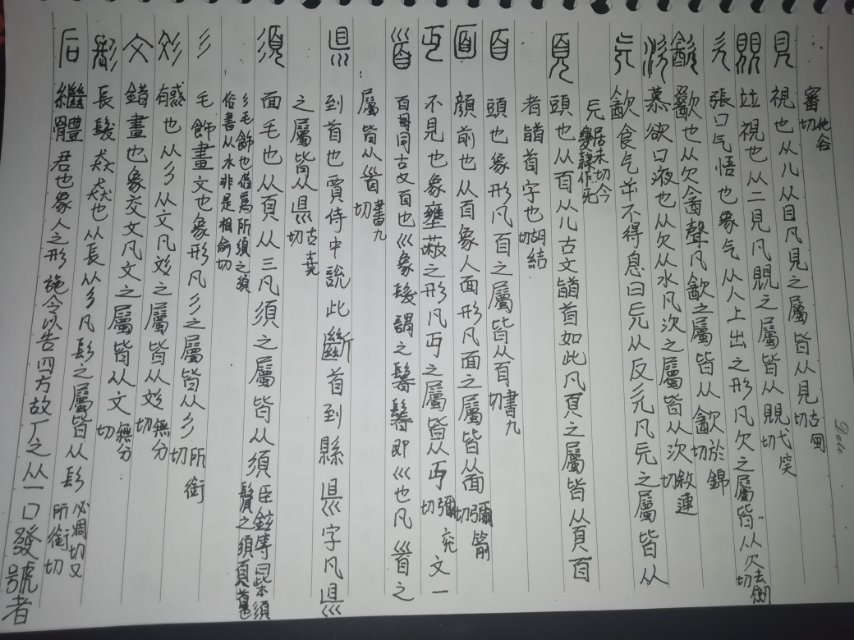 審切
見 視也从儿从目凡見之屬皆从見古甸切
覞 竝視也从二見凡覞之屬皆从覞弋笑切
欠 張口气悟也象气从人上出之形凡欠之屬皆从欠去劒切
㱃 歠也从欠酓聲凡㱃之屬皆从㱃於錦切
㳄 慕欲口液也从欠从水凡㳄之屬皆从㳄敘連切
旡 㱃食气屰不得息曰旡从反欠凡旡之屬皆从
旡居未切今變隸作旡
頁 頭也从𦣻从儿古文䭫首如此凡頁之屬皆从頁𦣻
者䭫首字也胡結切
𦣻 頭也象形凡𦣻之屬皆从𦣻書九切
面 顏前也从𦣻象人面形凡面之屬皆从面彌箭切
丏 不見也象壅蔽之形凡丏之屬皆从丏彌兖切 文一
𩠐 𦣻同古文𦣻也巛象髮謂之鬊鬊即巛也凡𩠐之
屬皆从𩠐書九切
𥄉 到首也賈侍中說此斷首到縣𥄉字凡𥄉
之屬皆从𥄉古堯切
須 面毛也从頁从彡凡須之屬皆从須臣鉉等曰此本須鬢之須頁首也
彡毛飾也借爲所須之須俗書从水非是相俞切
彡 毛飾畫文也象形凡彡之屬皆从彡所銜切
彣 𢒈也从彡从文凡彣之屬皆从彣無分切
文 錯畫也象交文凡文之屬皆从文無分切
髟 長髮猋猋也从長从彡凡髟之屬皆从髟必凋切又所銜切
后 繼體君也象人之形施令以告四方故厂之从一口發號者